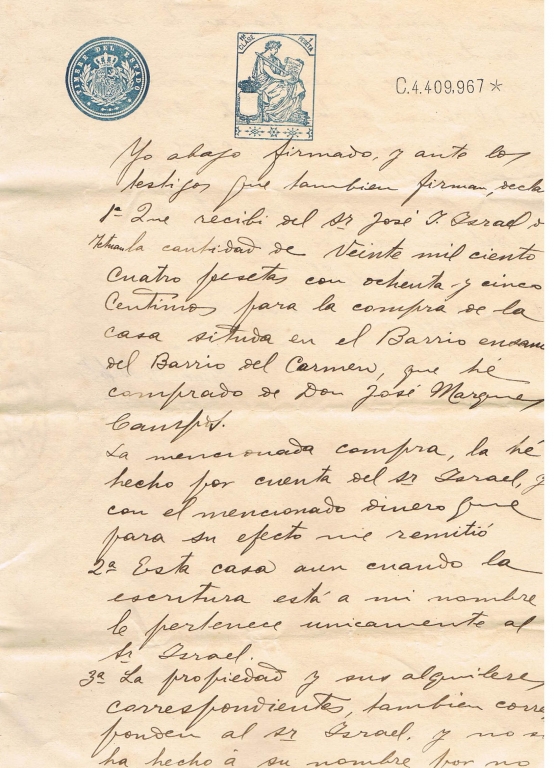 TIMBRE DEL ESTADO
11ª CLASE 1 PESETA
C.4.409,967 *
Yo abajo firmado, y ante los
testigos que tambien firman, decla
1ª Que recibi del Sr José I. Israel d
Tetuan la cantidad de Veinte mil ciento
cuatro pesetas con ochenta y cinco
Centimos para la compra de la
casa situda en el Barrio
del Barrio del Carmen, que hé
comprado de Don José Marques
Campos.
La mencionada compra, la hé
hecho por cuenta del Sr Israel, y
con el mencionado dinero que
para su efecto me remitió
2ª Esta casa aun cuando la
escritura está a mi nombre
le pertenece unicamente al
Sr Israel.
3ª La propiedad y sus alquileres
correspondientes, tambien corres
ponden al Sr Israel. y no se
ha hecho á su nombre por no